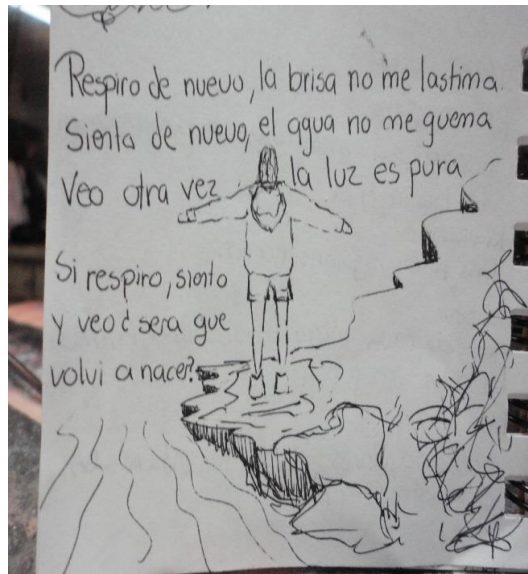 Respiro de nuevo, la brisa no me lastima.
Siento de nuevo, el agua no me quema
Veo otra vez la luz es pura
Si respiro, siento
y veo ¿ sera que
volvi a nacer?